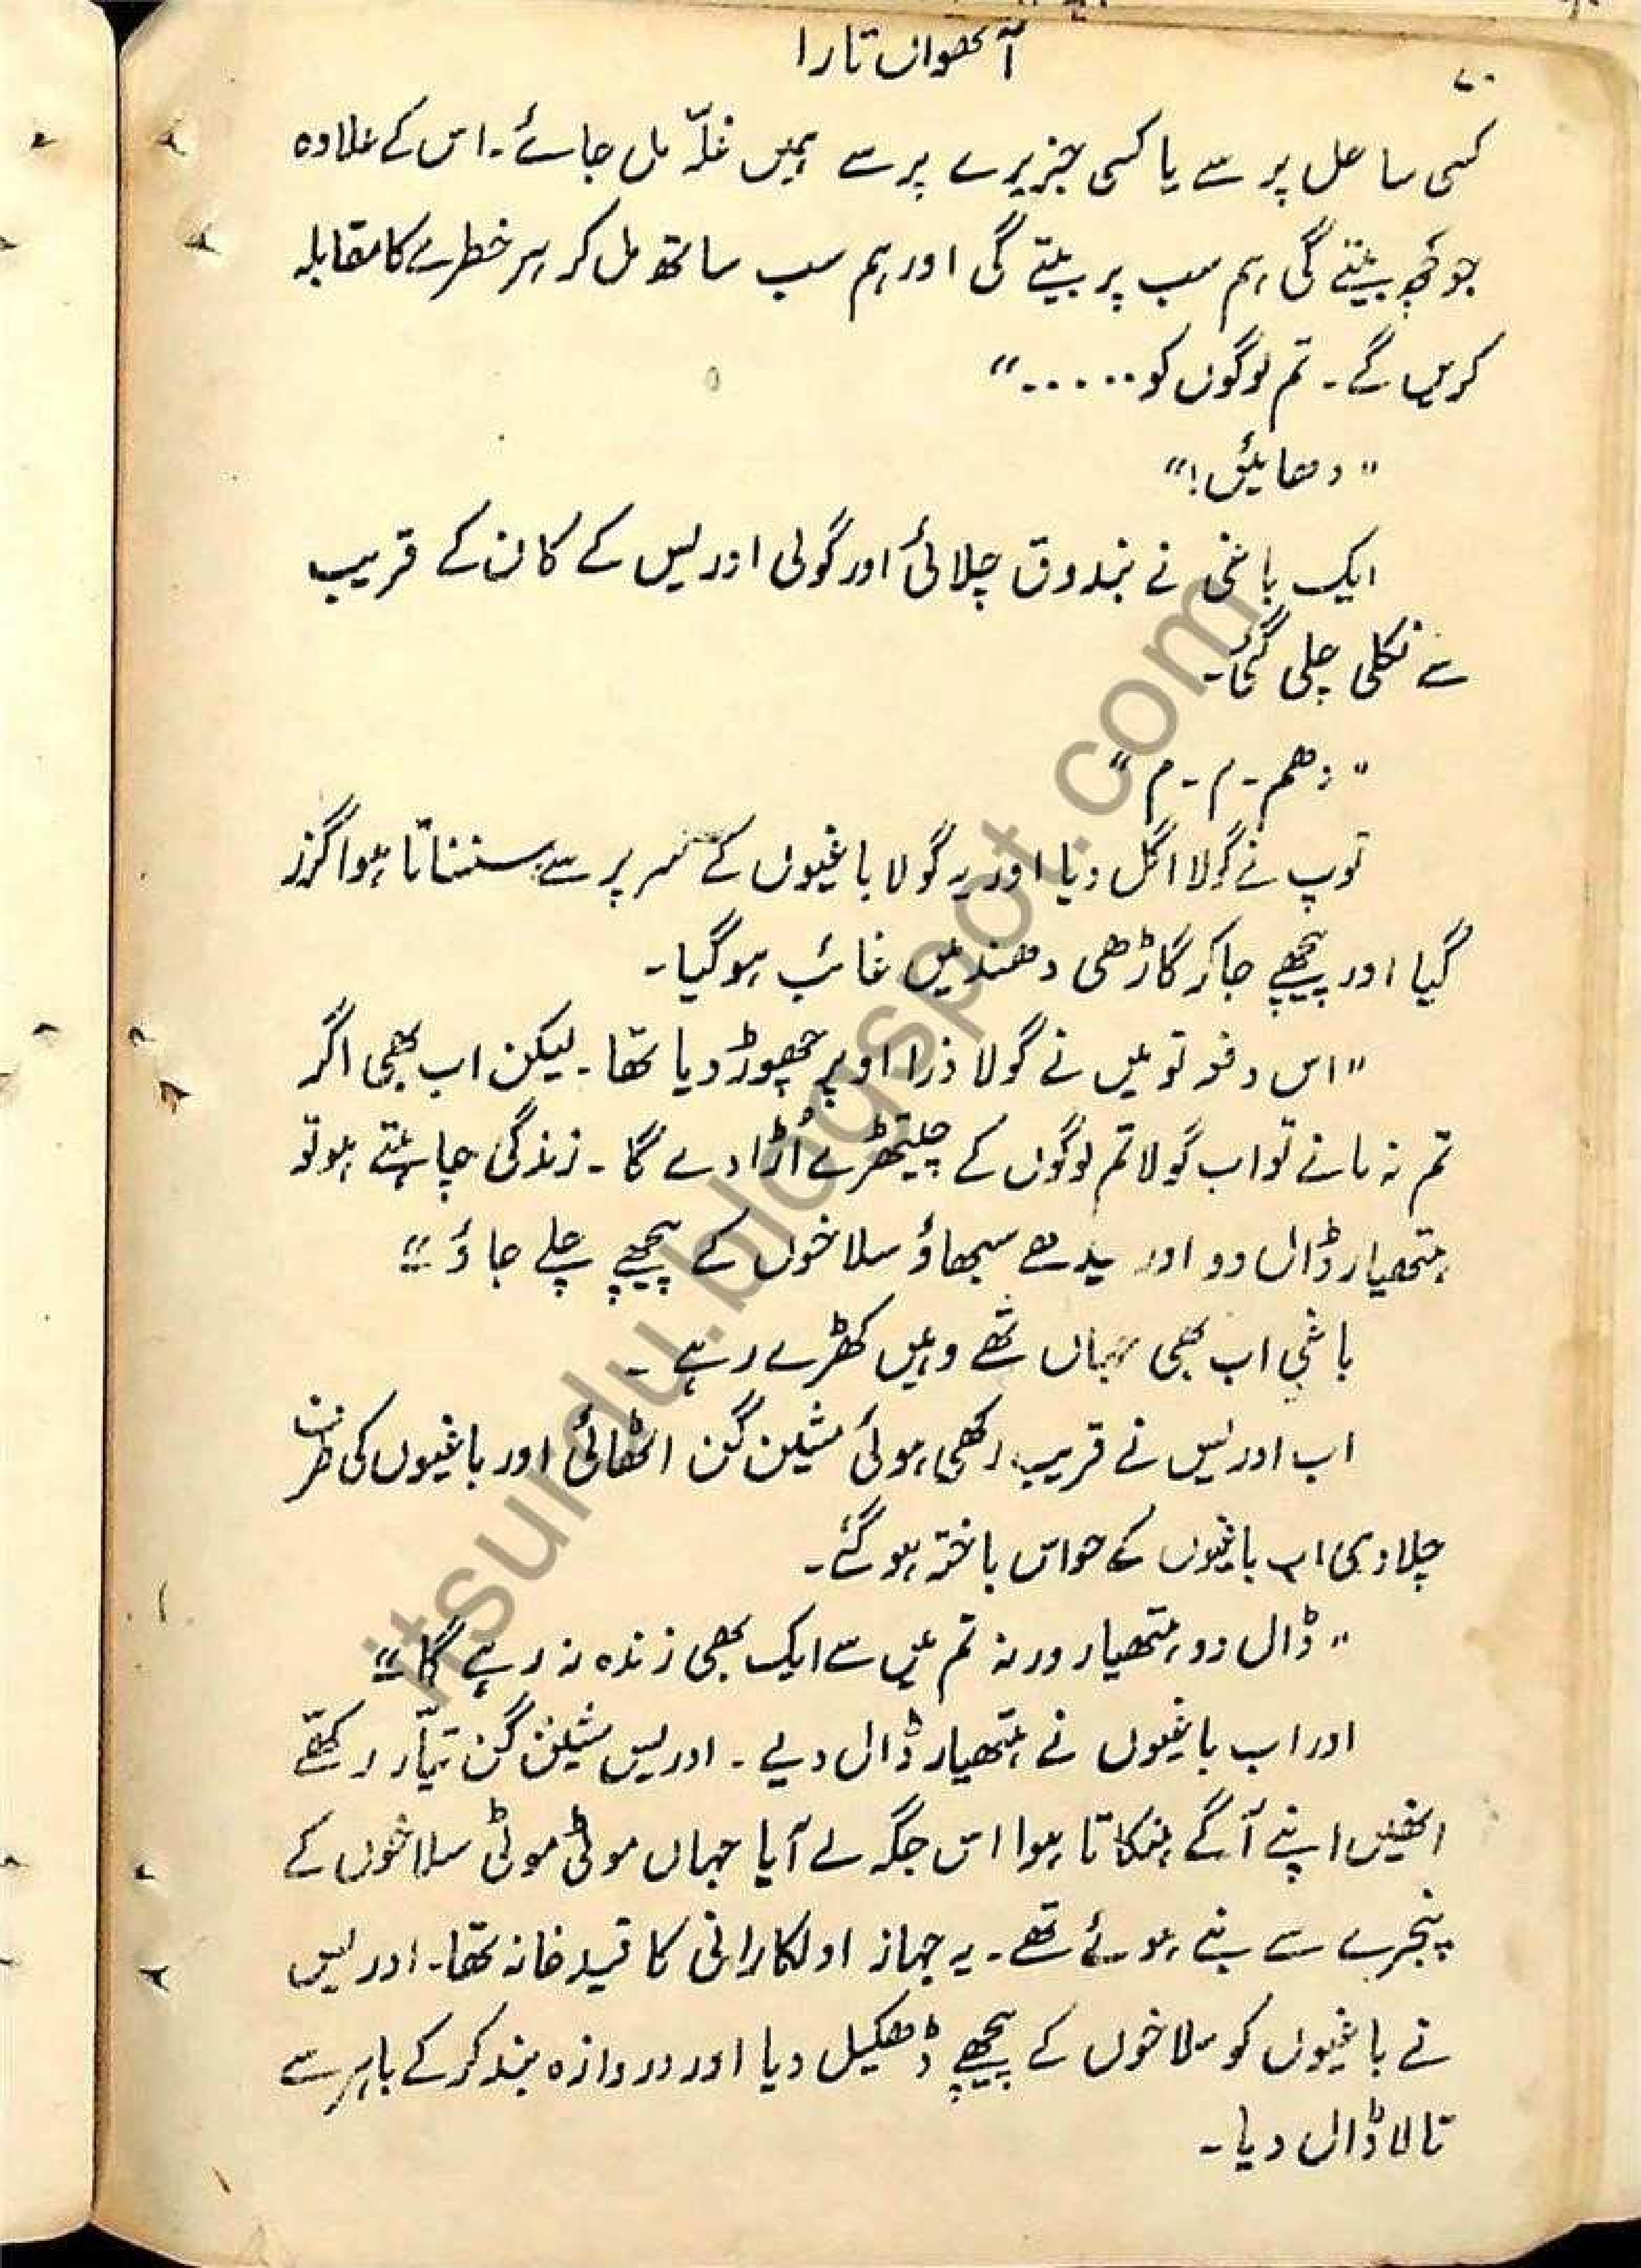 آٹھواں تارا
۷۰
کسی ساحل پر سے یا کسی جزیرے پر سے ہمیں غلّہ مل جائے۔ اس کے علاوہ
جو کچھ بیتے گی ہم سب پر بیتے گی اور ہم سب ساتھ مل کر ہر خطرے کا مقابلہ
کریں گے۔ تم لوگوں کو ......"
"دھائیں!"
ایک باغی نے بندوق چلائی اور گولی ادریس کے کان کے قریب
سے نکلی چلی گئی۔
"دھم۔م۔م"
توپ نے گولا اگل دیا اور یہ گولا باغیوں کے سر پر سے سنسناتا ہوا گزر
گیا اور پیچھے جا کر گاڑھی دھند میں غائب ہو گیا۔
"اس دفعہ تو میں نے گولا ذرا اوپر چھوڑ دیا تھا۔ لیکن اب بھی اگر
تم نہ مانے تو اب گولا تم لوگوں کے چیتھڑے اُڑا دے گا۔ زندگی چاہتے ہو تو
ہتھیار ڈال دو اور سیدھے سبھاؤ سلاخوں کے پیچھے چلے جاؤ۔"
باغی اب بھی جہاں تھے وہیں کھڑے رہے۔
اب ادریس نے قریب رکھی ہوئی مشین گن اٹھائی اور باغیوں کی طرف
چلا دی اب باغیوں کے حواس باختہ ہو گئے۔
"ڈال دو ہتھیار ورنہ تم میں سے ایک بھی زندہ نہ رہے گا۔"
اور اب باغیوں نے ہتھیار ڈال دیے۔ ادریس مشین گن تیّار رکھّے
انھیں اپنے آگے ہنکاتا ہوا اس جگہ لے آیا جہاں موٹی موٹی سلاخوں کے
پنجرے سے بنے ہوئے تھے۔ یہ جہاز اولکارانی کا قید خانہ تھا۔ ادریس
نے باغیوں کو سلاخوں کے پیچھے ڈھکیل دیا اور دروازہ بند کر کے باہر سے
تالا ڈال دیا۔
itsurdu.blogspot.com